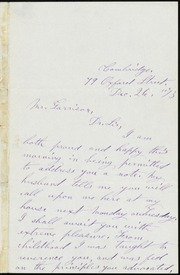 Cambridge,
79 Oxford Street,
Dec. 26.
Mr. Garrison,
Dr. Sir,
I am
both proud and happy this
morning in being permitted
to address you a note. My
husband tells me you will
call upon me here at my
house, next Monday Wednesday,
I shall await you with
extreme pleasure. From
childhood I was taught to
reverence you, and was fed
on the principles you advocated